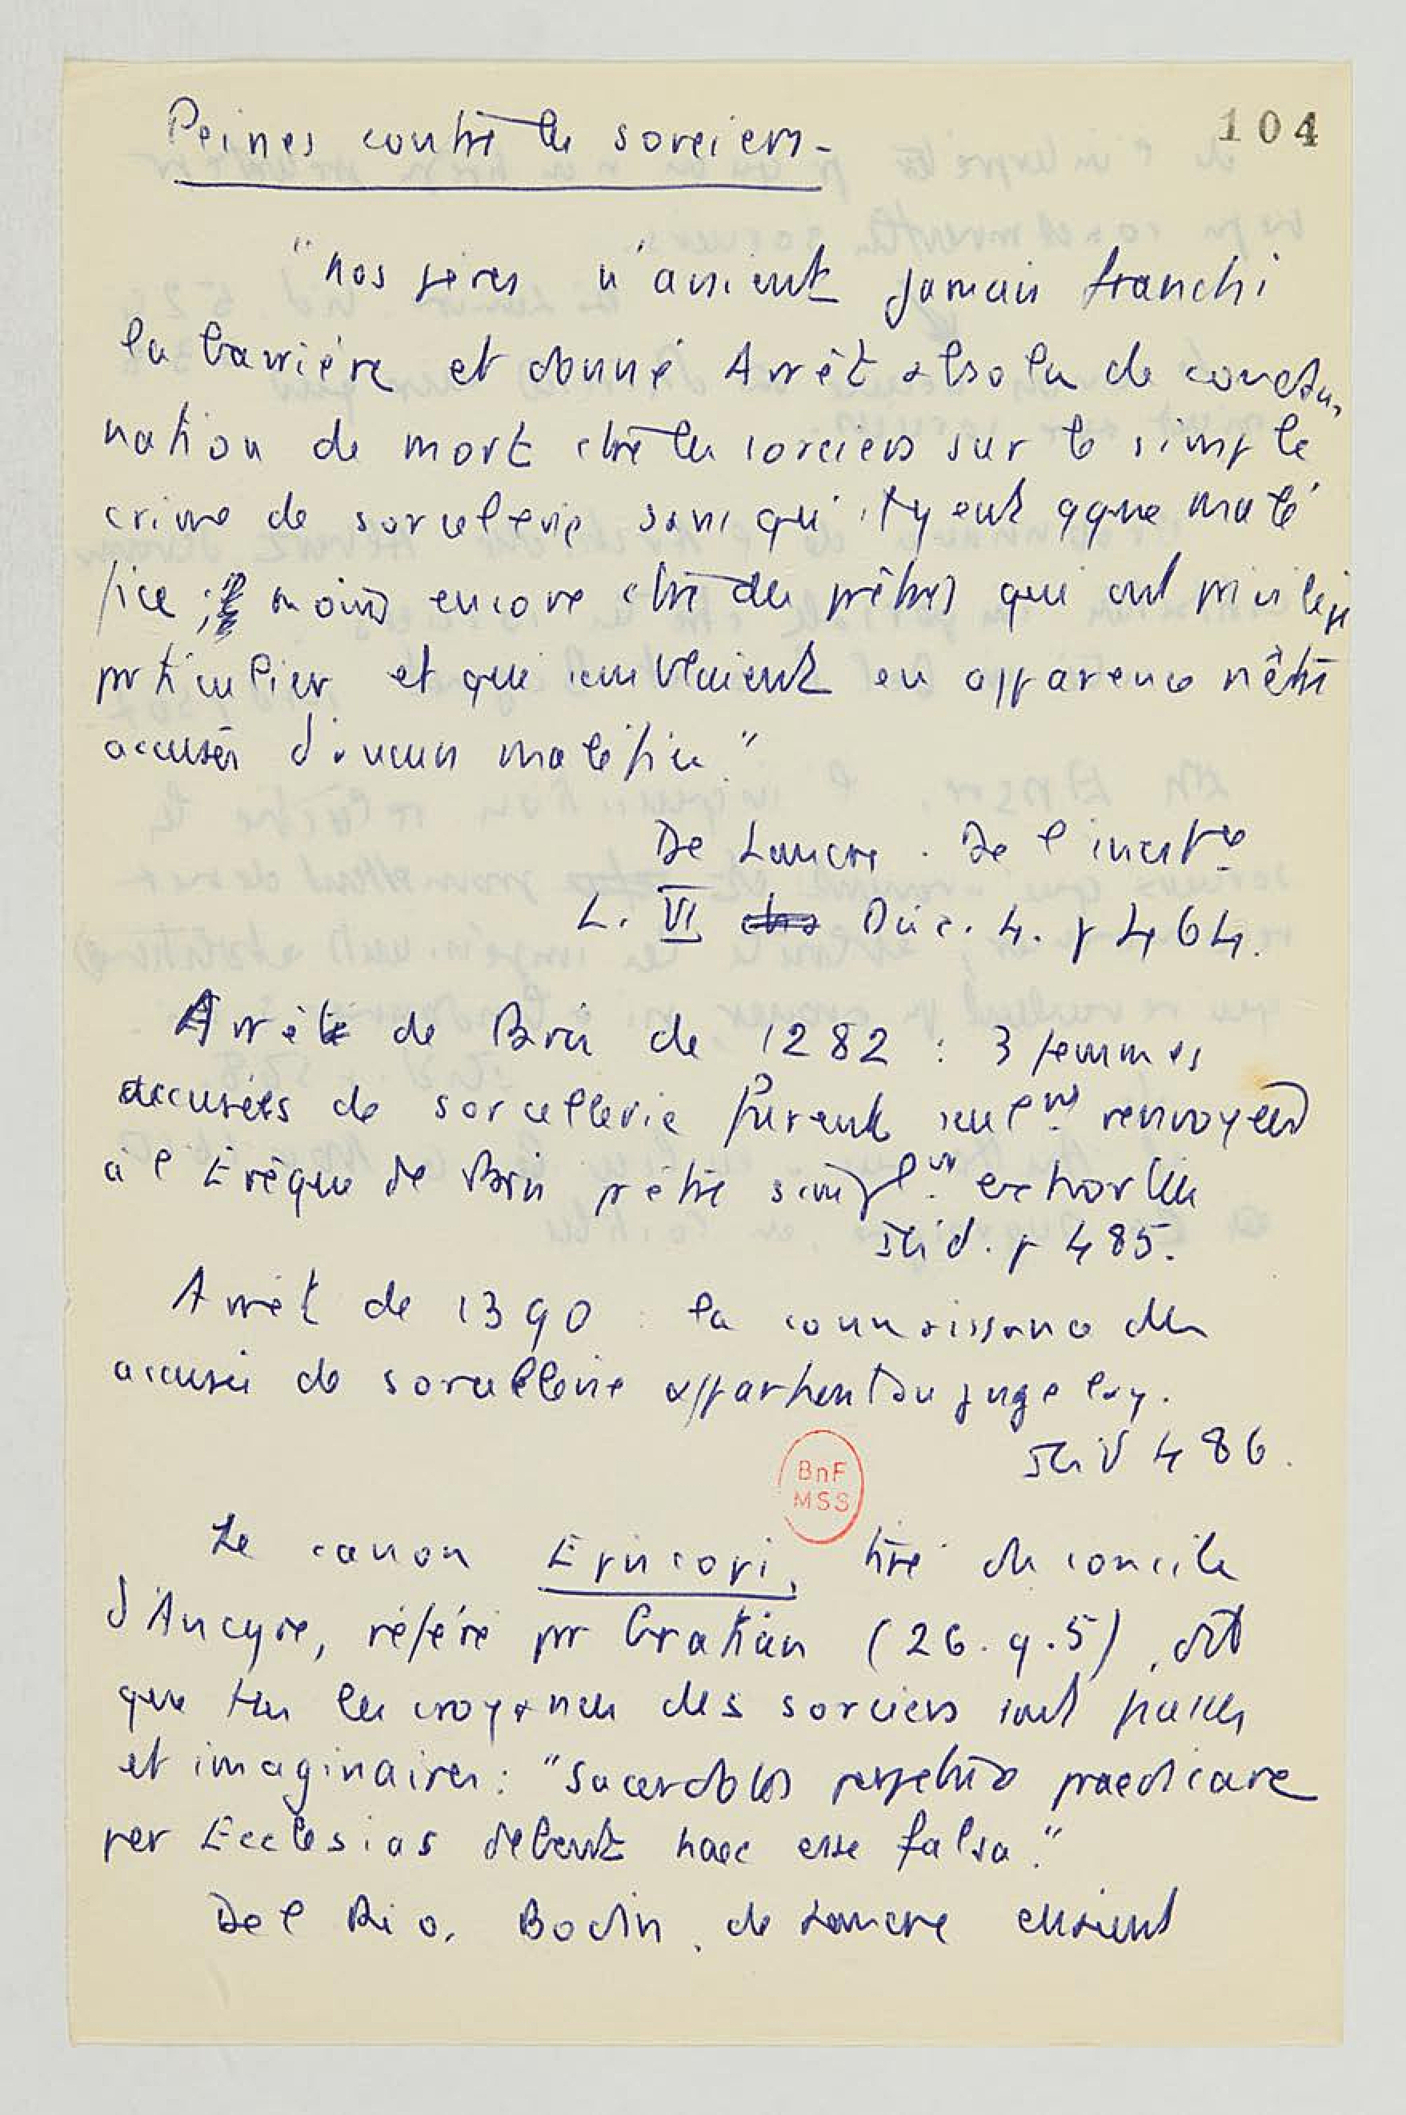 104
Peines contre les sorciers -
"nos pères n'avaient jamais franchi
la barrière et donné Arrêt absolu de condam
nation de mort ctre les sorciers sur le simple
crime de sorcellerie sans qu'il y eut qque malé
fice ; moins encore ctre des prêtres qui ont privilège
prticulier et qui semblaient en apparence n'être
accusés d'aucun maléfice."
De Lancre. De l'incrté
L. VI Disc. 4. p 464.
Arrêt de de 1282 : 3 femmes
accusées de sorcellerie furent seulmt renvoyées
à l'Evêque de pr être simplmt
Ibid. p 485.
Arrêt de 1390 : la connaissance des
accusés de sorcellerie appartient au juge lay.
Ibid 486.
BnF
MSS
Le canon Episcopi, tiré du concile
d'Ancyre, référé pr Gratian (26. q. 5), dit
que ttes les croyances des sorciers sont fausses
et imaginaires : "Sacerdotes praedicare
per Ecclesias debent haec esse falsa."
Del Rio, Bodin, de Lancre